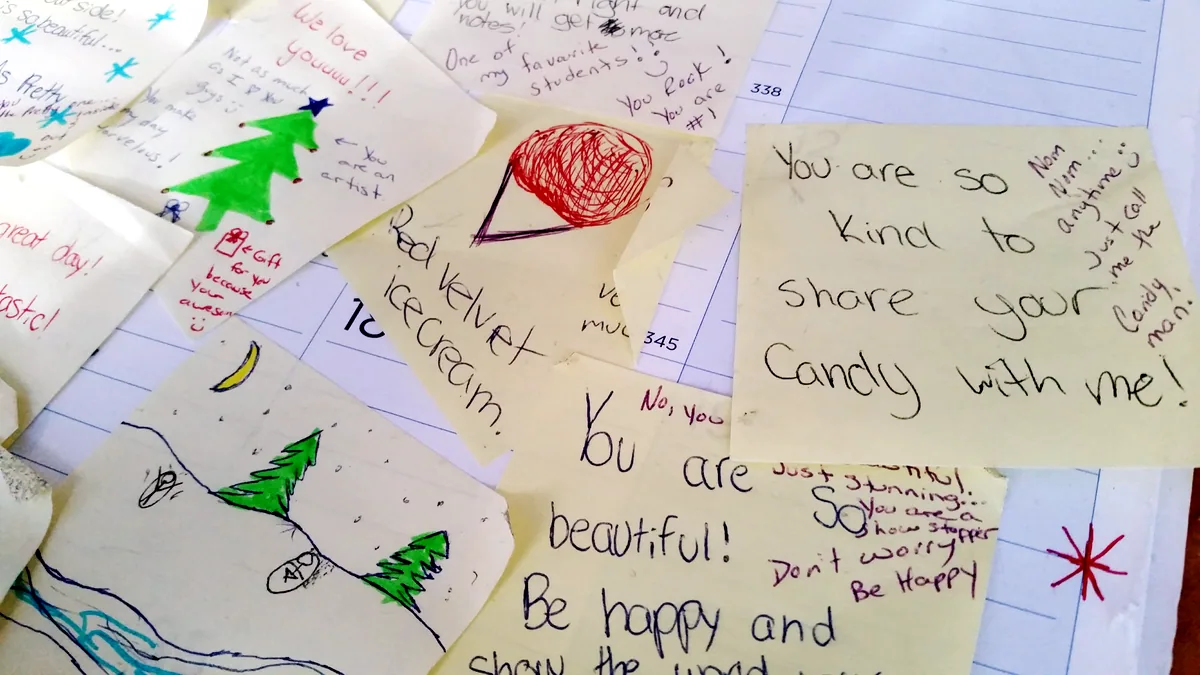 side!
is so beautiful...
Pretty
great day!
We love
youuuu!!!
Not as much
as I ♡ you
guys
You make
my day
← You
are an
artist.
← Gift
for you
because
your
awesom
you will get more
notes!
One of
my favorite
students!
You Rock!
You are
#1
338
Red Velvet
icecream.
18
345
You are so
Kind to
share your
Candy with me!
Nom
Nom....
anytime
Just call
me the
Candy
man.
No, you
You are
beautiful!
Just stunning...
So
You are a
show stopper
Don't worry
Be Happy
Be happy and
show the